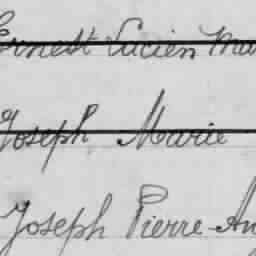 Ernest Lucien Ma
Joseph Marie
Joseph Pierre An